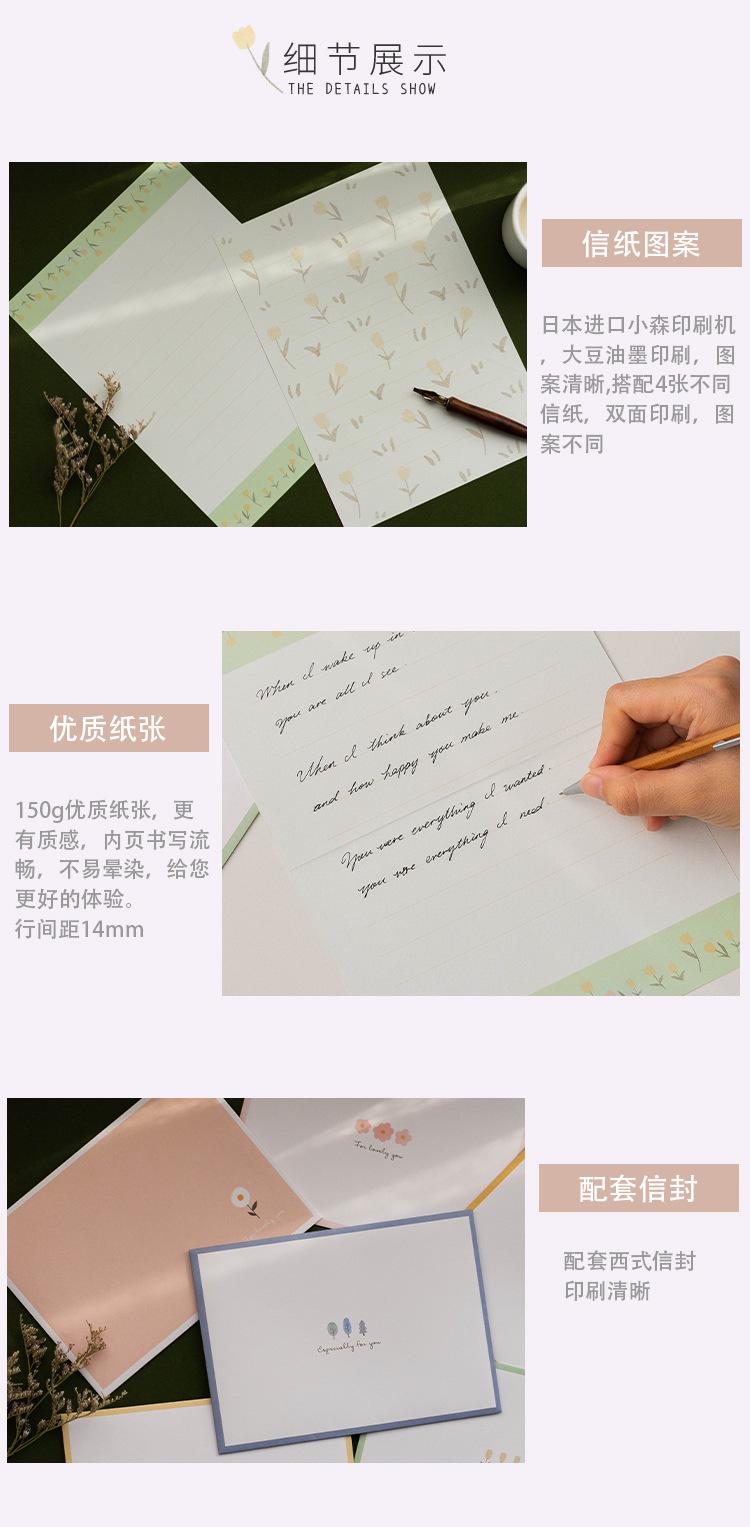 细节展示
THE DETAILS SHOW
信纸图案
日本进口小森印刷机
，大豆油墨印刷，图
案清晰,搭配4张不同
信纸，双面印刷，图
案不同
When I wake up in
you are all I see.
When I think about you.
and how happy you make me.
You were everything I wanted.
you were everything I need.
优质纸张
150g优质纸张，更
有质感，内页书写流
畅，不易晕染，给您
更好的体验。
行间距14mm
For lovely you
Especially for you
配套信封
配套西式信封
印刷清晰